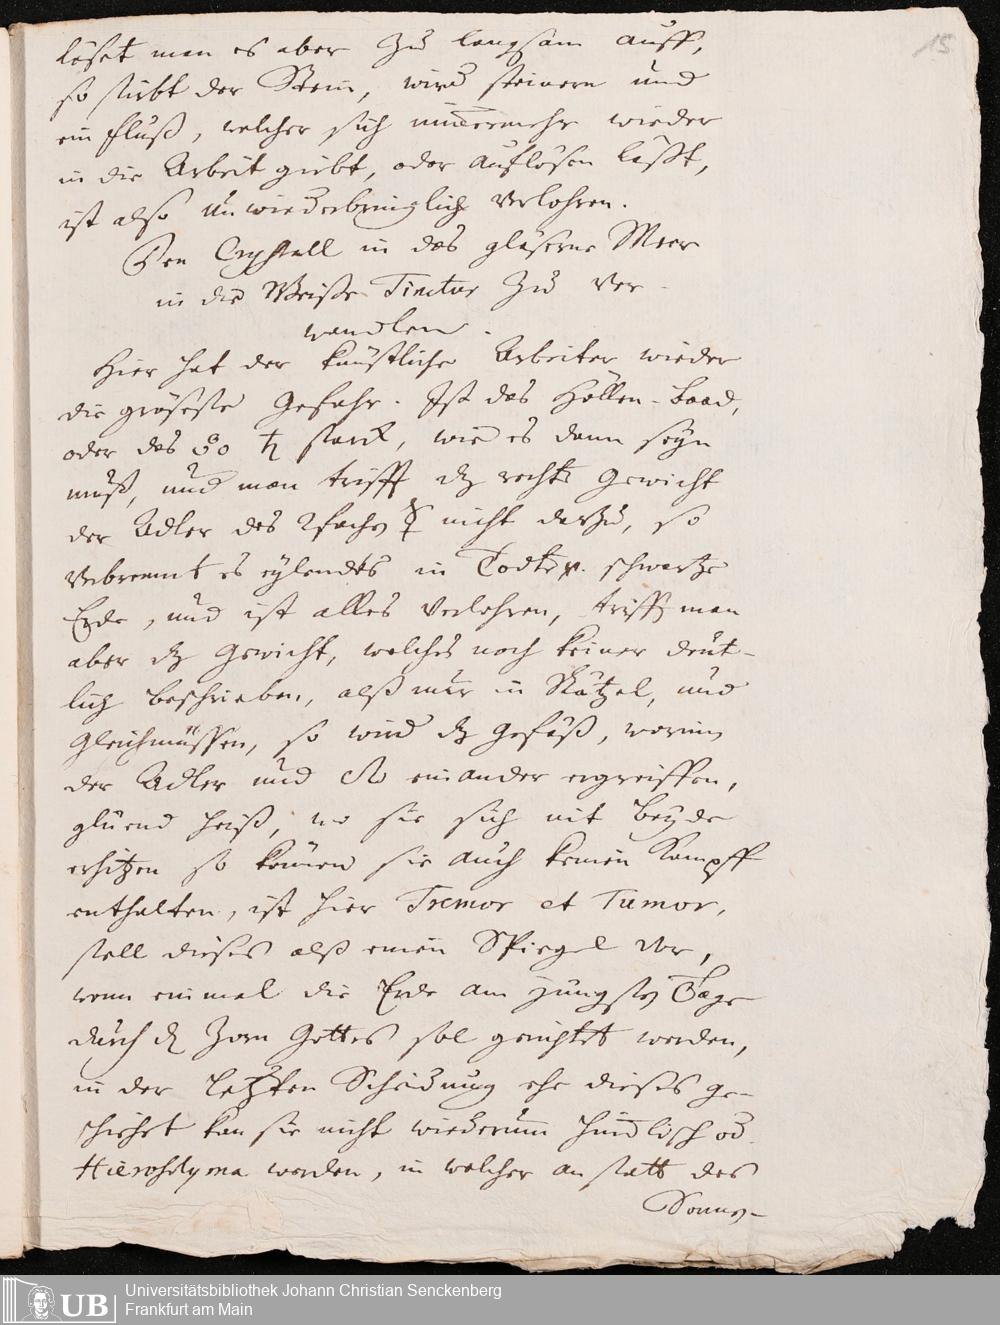 15
löset man es aber zu langsam auff,
so stirbt der Stein, wird steinern und
ein fluß, welcher sich nimmermehr wieder
in die Arbeit giebt, oder auflösen läßt,
ist also unwiederbringlich verlohren.
Den Crystall in das gläserne Meer
in die Weiße Tinctur zu ver-
wandlen.
Hier hat der künstliche Arbeiter wieder
die gröseste Gefahr. Ist das Höllen-baad,
oder das ♄ starck, wie es dann seyn
muß, und man trifft dz rechte Gewicht
der Adler des 2fachen ☿ nicht darzu, so
verbrennt es eylends in Todte schwartze
Erde, und ist alles verlohren, trifft man
aber dz Gewicht, welches noch keiner deut-
lich beschrieben, alß nur in Rätzel, und
Gleichnüssen, so wird dz Gefäß, worinn
der Adler und einander ergreiffen,
glüend heiß, wo sie sich mit beyde
erhitzen so können sie auch keinen Kampff
enthalten, ist hier Tremor et Tumor,
stell dieses alß einen Spiegel vor,
wenn einmal die Erde am jüngsten Tage
durch den Zorn Gottes sol gerichtet werden,
in der letzten Scheidung ehe dieses ge-
schiehet kan sie nicht wiederum himmlisch od
Hierosolyma werden, in welcher an statt des
Sonnen-
UB
Universitätsbibliothek Johann Christian Senckenberg
Frankfurt am Main